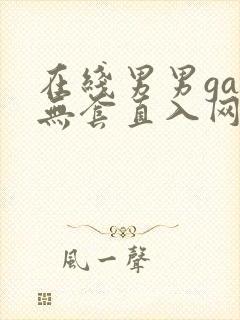 在线男男ga
無套直入网
風一聲